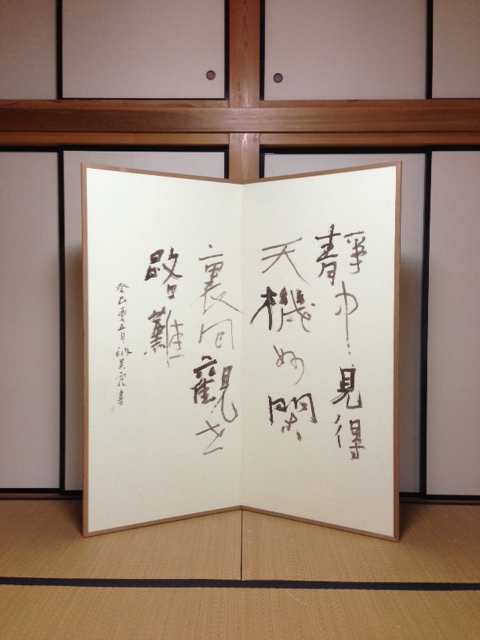 靜中見得
天機妙閑
裏回觀世
路難
癸巳夏五月 書